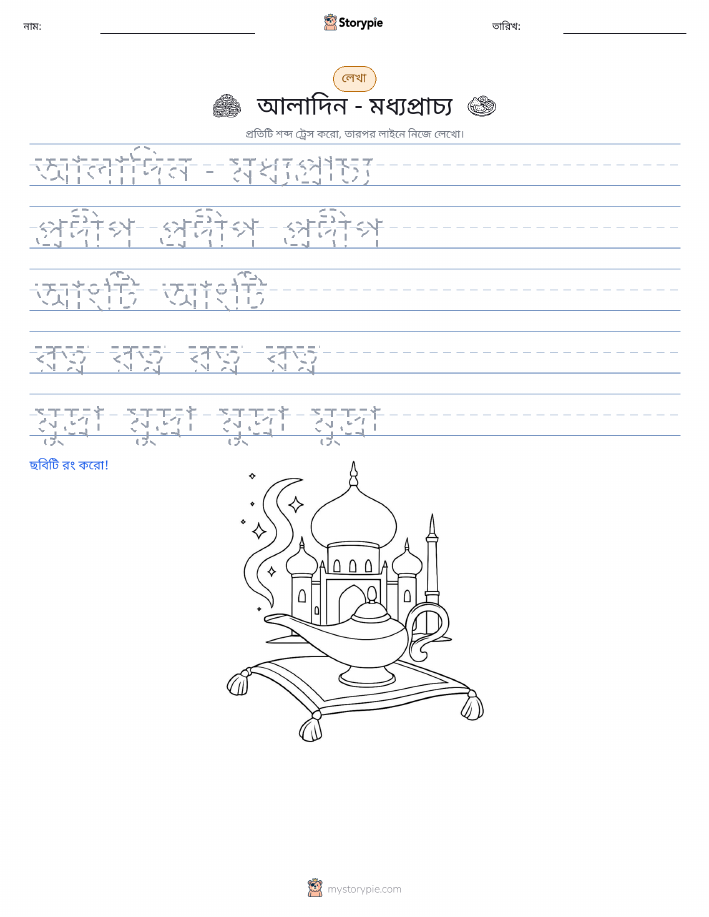 নাম:
Storypie
তারিখ:
লেখা
আলাদিন - মধ্যপ্রাচ্য
প্রতিটি শব্দ ট্রেস করো, তারপর লাইনে নিজে লেখো।
আলাদিন - মধ্যপ্রাচ্য
প্রদীপ প্রদীপ প্রদীপ
আংটি আংটি
রত্ন রত্ন রত্ন রত্ন
মুদ্রা মুদ্রা মুদ্রা মুদ্রা
ছবিটি রং করো!
mystorypie.com